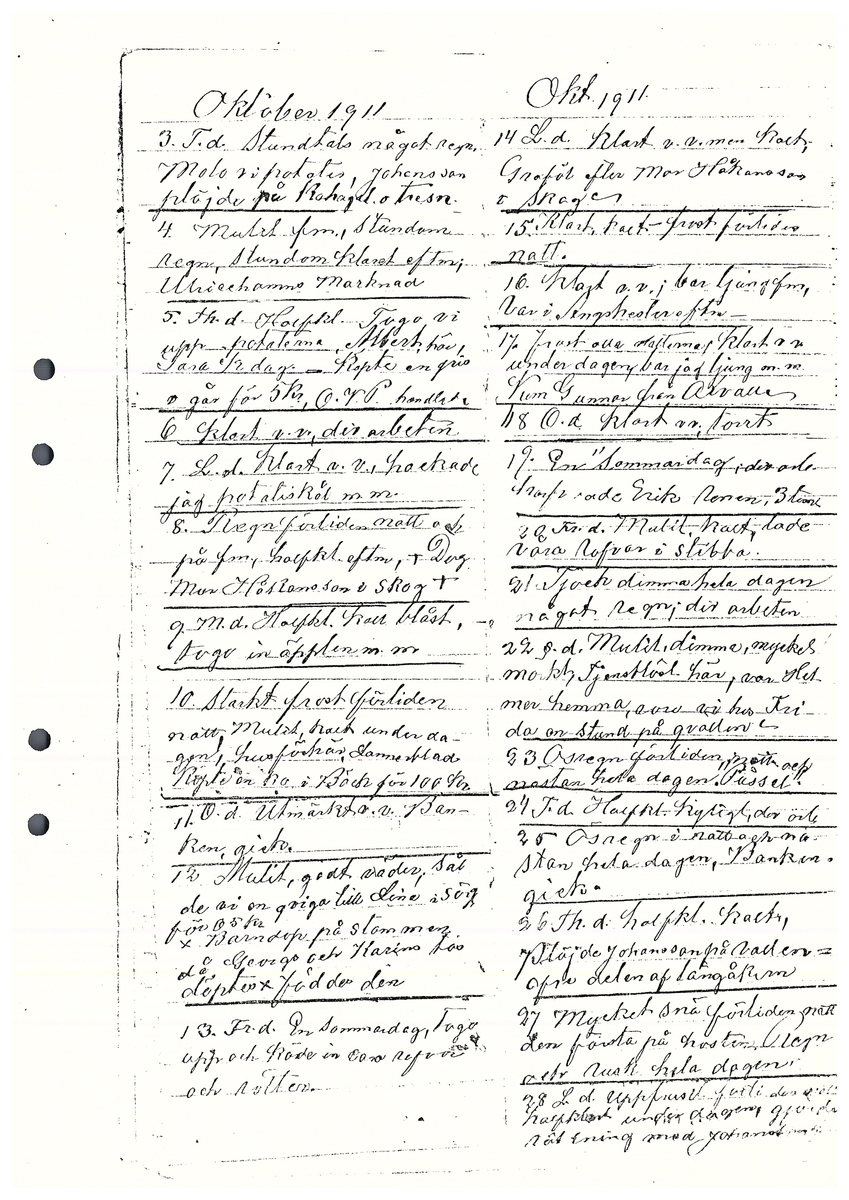 Oktober 1911
3. T.d. Stundtals något regn,
Molo vi potates, Johansson
plöjde på
4. Mulit fm., stundom
regn, stundom klart eftm;
Ulricehamns Marknad
5. Th.d. Halfkl. Togo vi
upp potaterna, Albert, här,
1/2 dag = Köpte en gris
i går för 5 kr, handlat
6 Klart v.v, div arbeten
7. L.d. Klart v.v., hackade
jag potatiskål m.m.
8. Regn förliden natt och
på fm, halfkl. eftm, + Dog
Mor Håkansson i Skog +
9 M.d. Halfkl. kall blåst,
togo in äpplen m m
10. Starkt frost förliden
natt, Mulit, kact under da-
gen, husförhör, Dannerblad
Köpte en ko i Bäck för 100 kr
11. O.d. Utmärkt v.v. Ban-
ken, gick.
12 Mulit, godt väder, Sål
de vi en qviga till Line i
för 85 kr
x Barndop på stommen
då Georgs och Karins
döptes x född den
13. Fr.d. En sommardag, Togo
upp och körde in våra rofvor
och rötter.
Okt. 1911.
14 L.d. Klart v.v. men kact,
Graföl efter Mor Håkansson
i Skoge
15. Klart, kact - frost förliden
natt.
16. Klart v.v.; bar ljung fm,
Var i eftm -
17. frost alla nätterna, klart v v
under dagen, bar jag ljung m. m
Kom Gunnar från
18 O.d. Klart vv, torrt
19. En "Sommardag, div arb.
Erik 3
20 Fr.d. Mulit kact, lade
våra rofvor i stibba.
21. Tjock dimma hela dagen
något regn; div arbeten
22 S.d. Mulit, dimma, mycket
morkt, Tjenstlöst här, var Hel-
mer hemma, voro vi hos Fri-
da en stund på qvällen
23 Ösregn förliden natt och
nästan hela dagen.
24 T.d. Halfkl. kyligt, div arb
25 Ösregn i natt och nä-
stan hela dagen, Banken
gick.
26 Th.d. halfkl. kact,
Plöjde Johansson på vallen =
öfre delen af långåkern
27 Mycket snö förliden natt
den första på hösten. Regn
och rusk hela dagen.
28 L.d. Uppfrusit förliden natt
halfklart under dagen, gjorde
med Johansson